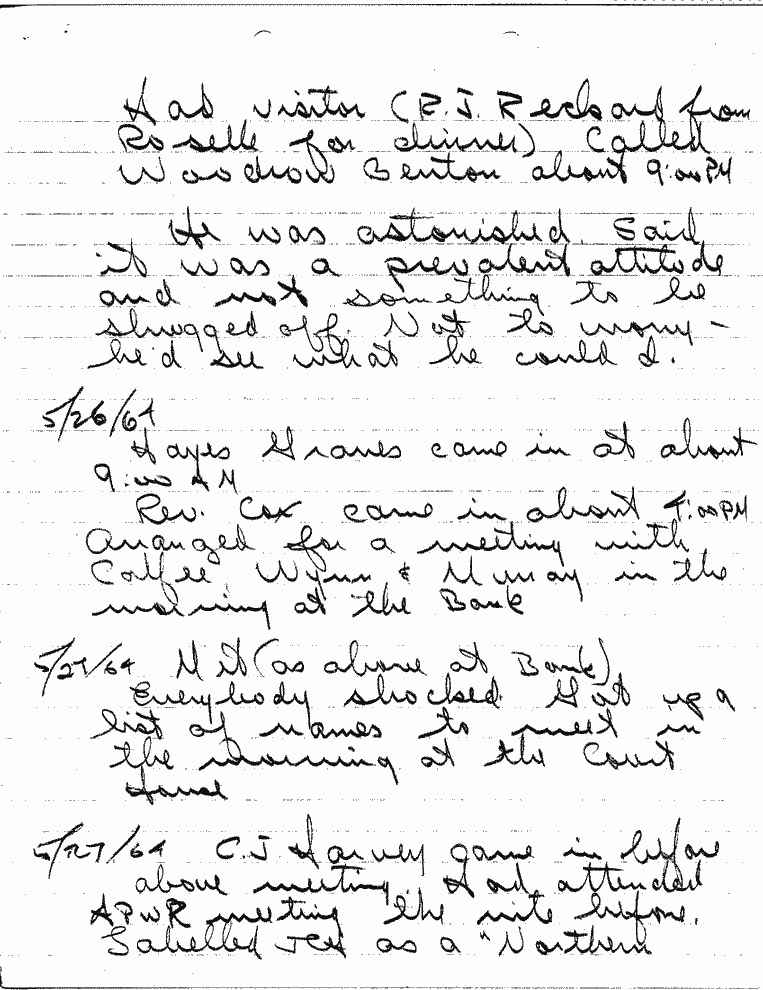 Had visitor (R.J. Recksard from
Roselle for dinner) Called
Woodrow Benton about 9:00 PM
He was astonished. Said
it was a prevalent attitude
and not something to be
shrugged off. Not to worry -
he'd see what he could d.
5/26/64
Hayes Graves came in at about
9:00 AM
Rev. Cox came in about 4:00 PM
Arranged for a meeting with
Coffee, Wynn & Murray in the
morning at the Bank
5/27/64 Met (as above at Bank)
Everybody shocked. Got up a
list of names to meet in
the morning at the Court
House
5/27/64 C.J Harvey game in before
above meeting. Had attended
APWR meeting the nite before.
Labelled as a "Northern